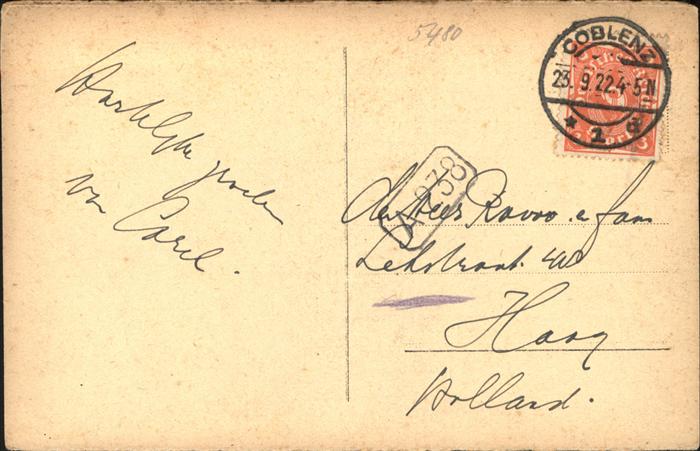 5480
COBLENZ
23.9.22.4-5N
* 1 d
3
Hartelijke groeten
van Carel.
38
den Heer Ravoo. e fam
Lekstraat
Haag
Holland.